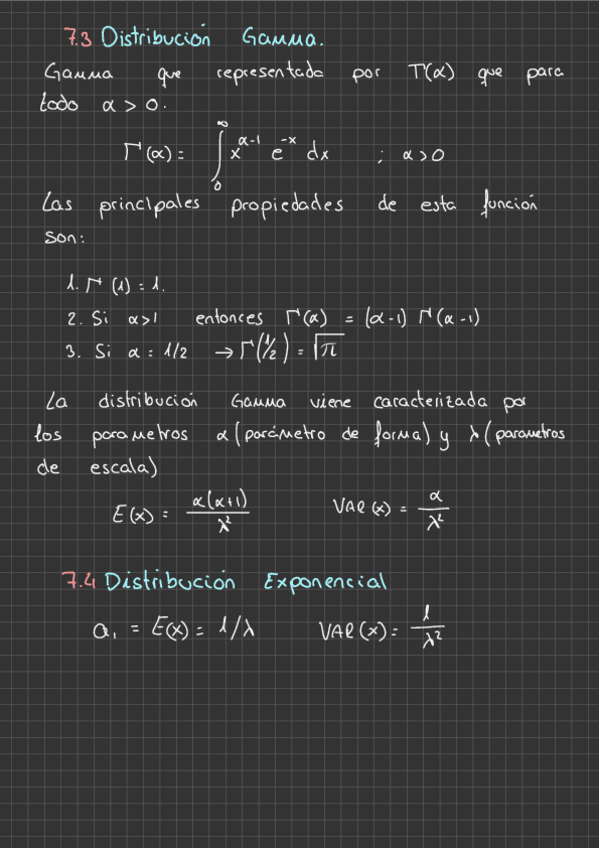 7.3 Distribución Gamma.
Gamma que representada por Γ(α) que para
todo α > 0.
Γ(α) = ∫₀^∞ x^(α-1) e^(-x) dx ; α > 0
Las principales propiedades de esta función
son:
1. Γ(1) = 1.
2. Si α>1 entonces Γ(α) = (α-1) Γ(α-1)
3. Si α = 1/2 → Γ(1/2) = √π
La distribución Gamma viene caracterizada por
los parametros α (parámetro de forma) y λ (parametros
de escala)
E(x) = α(α+1)/λ² VAR(x) = α/λ²
7.4 Distribución Exponencial
a₁ = E(x) = 1/λ VAR(x) = 1/λ²